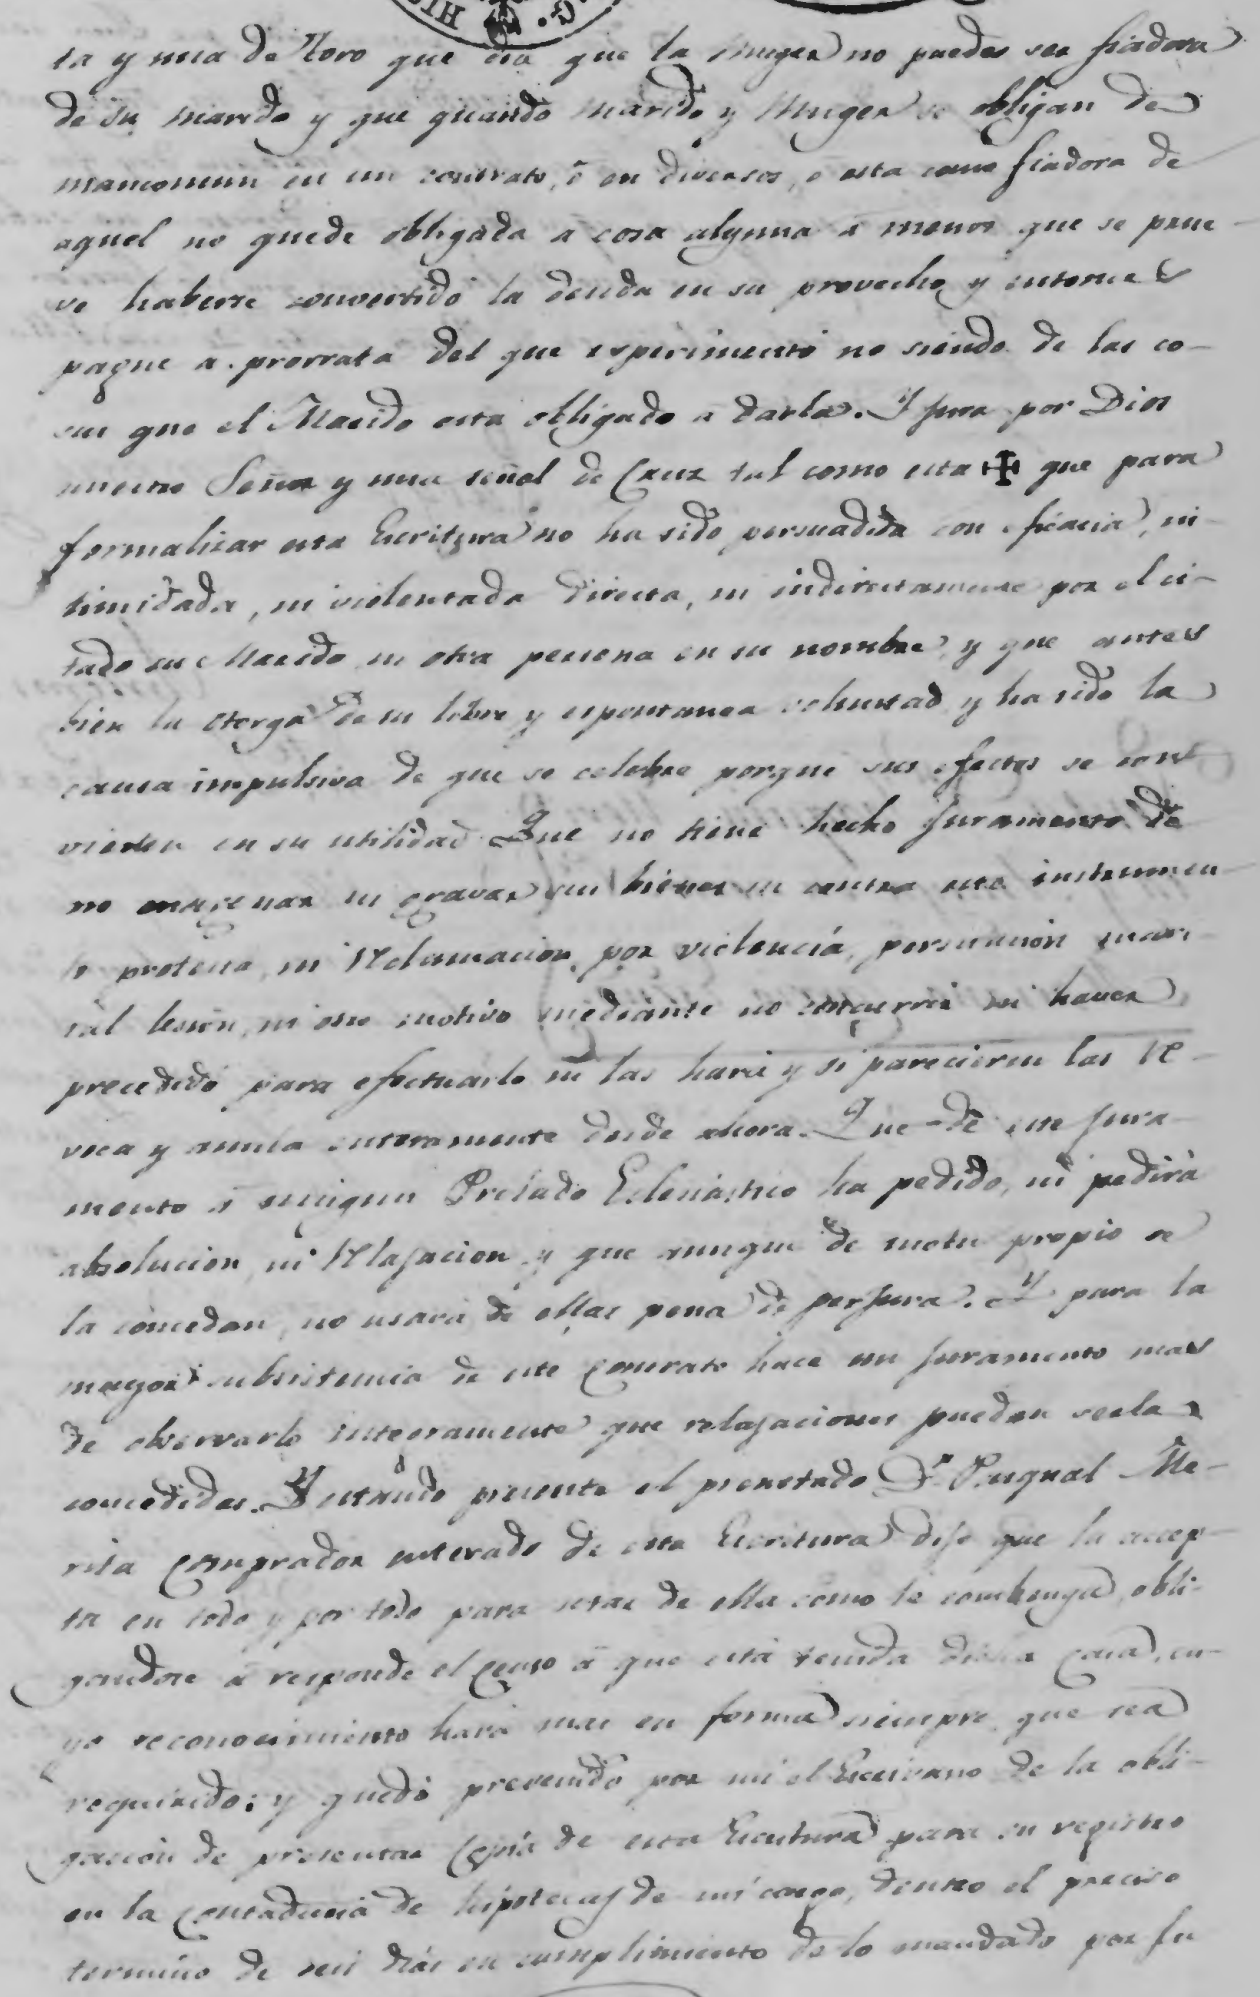 HIS
G.
ta y una de Toro que dia que la Muger no puedes ser fiadora
de su marido y que quando marido y Muger se obligan de
mancomun en un contrato, ó en diversos, o esta como fiadora de
aquel no quede obligada a cosa alguna a menos que se prue-
ve haberse convertido la deuda en su provecho, y entonces
pague a prorrata del que experimentó no siendo de las co-
sas que el Marido esta obligado a darla. Y jura por Dios
nuestro Señor y una señal de Cruz tal como esta ✠ que para
formalizar esta Escritura no ha sido persuadida con eficacia, in-
timidada, ni violentada directa, ni indirectamente por el ci-
tado su Marido ni otra persona en su nombre, y que antes
bien la otorga de su libre y espontanea voluntad y ha sido la
causa impulsiva de que se celebre porque sus efectos se con-
vierten en su utilidad. Que no tiene hecho Juramento de
no enagenar ni gravar sus bienes ni contra este instrumen-
to protesta, ni Reclamacion, por violencia, persuacion mari-
tal lesion, ni otro motivo mediante no concurrir ni haver
precedido para efectuarlo ni las hará y si parecieren las re-
voca y anula enteramente desde ahora. Que de este Jura-
mento á ningun Prelado Eclesiástico ha pedido, ni pedirá
absolucion, ni Relajacion y que aunque de motu propio se
la concedan, no usará de ellas pena de perjura. Y para la
mayor subsistencia de este Contrato hace un juramento mas
de observarlo integramente que relajaciones puedan serla
concedidas. Y estando presente el prenotado Dn. Pasqual Me-
rita Comprador enterado de esta Escritura dijo que la accep-
ta en todo y por todo para usar de ella como le combenga, obli-
gandose á responde el Censo á que está tenida dicha Casa, cu-
yo reconocimiento hará mas en forma siempre que sea
requirido; y quedó prevenido por mi el Escrivano de la obli-
gación de presentar Copia de esta Escritura para su registro
en la Contaduria de hipotecas de mi cargo, dentro el preciso
termino de seis dias en cumplimiento de lo mandado por su